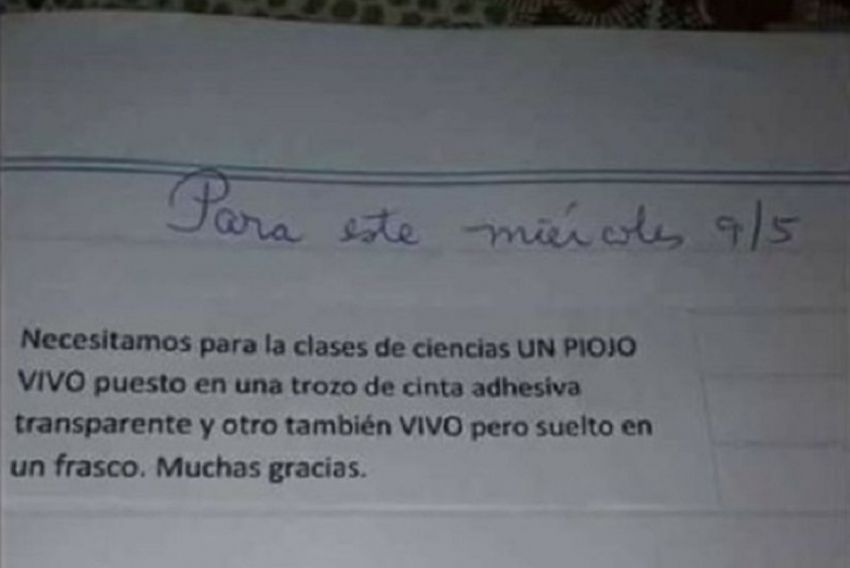 Para este miércoles 9/5
Necesitamos para la clases de ciencias UN PIOJO
VIVO puesto en una trozo de cinta adhesiva
transparente y otro también VIVO pero suelto en
un frasco. Muchas gracias.